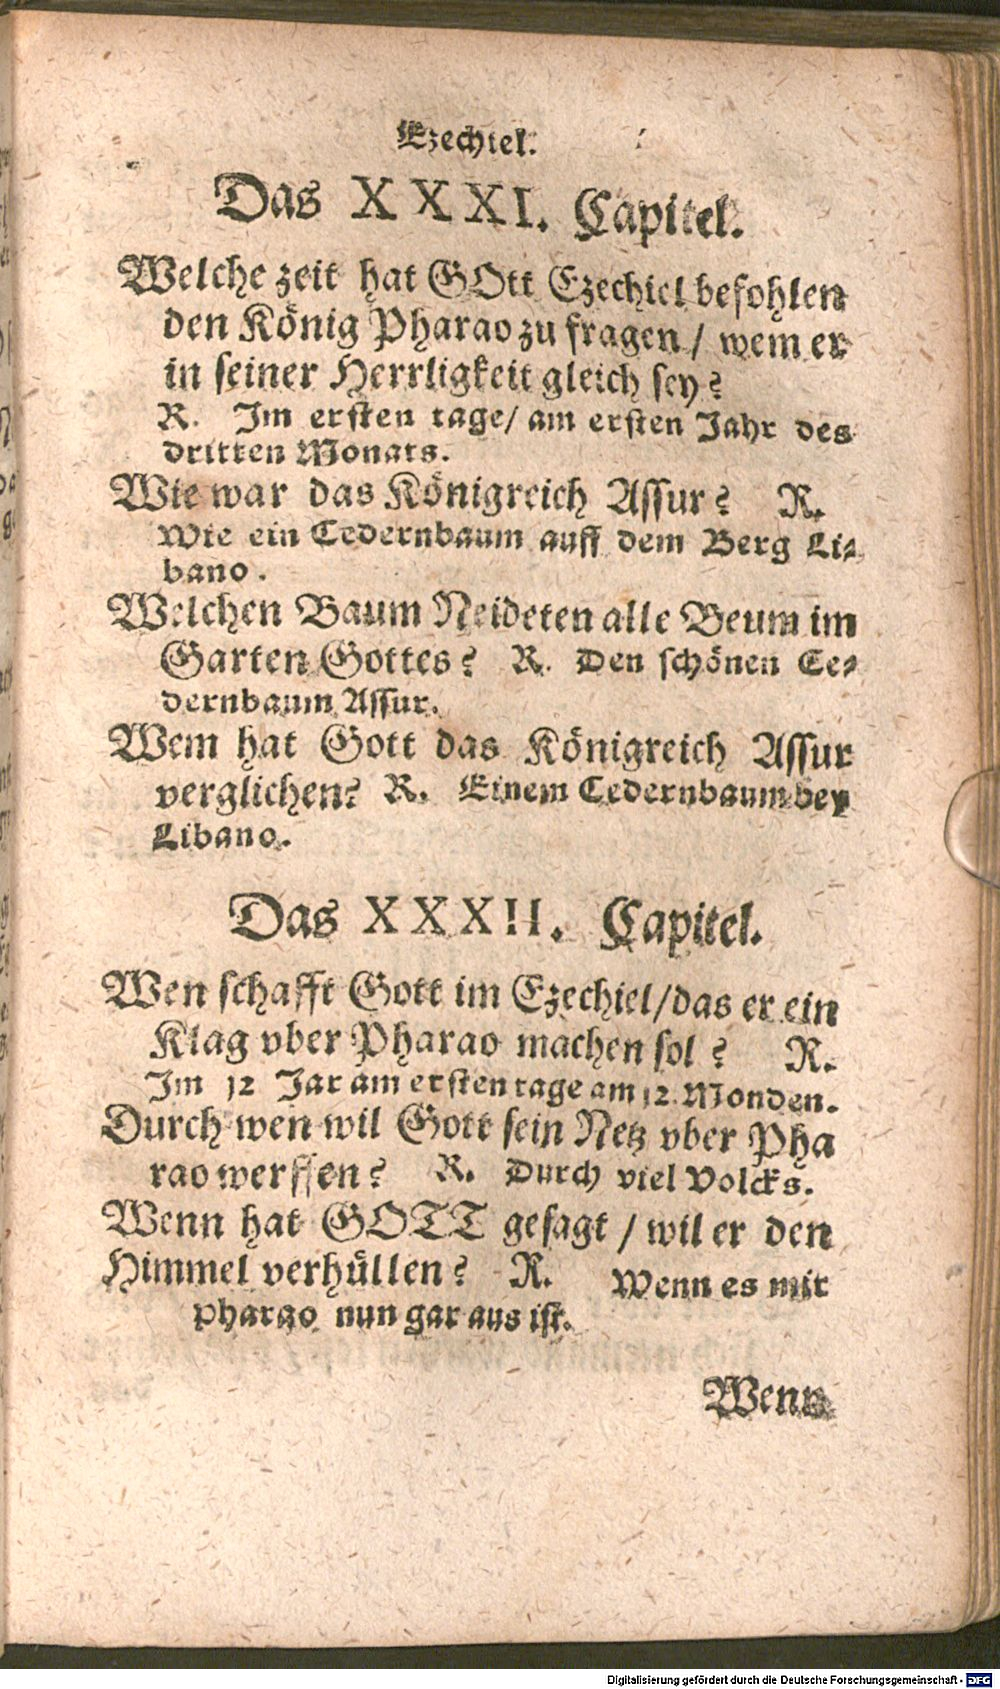 Ezechiel.
Das XXXI. Capitel.
Welche zeit hat GOtt Ezechiel befohlen
den König Pharao zu fragen / wem er
in seiner Herrligkeit gleich sey?
R. Im ersten tage/ am ersten Jahr des
dritten Monats.
Wie war das Königreich Assur? R.
Wie ein Cedernbaum auff dem Berg Li-
bano.
Welchen Baum Neideten alle Beum im
Garten Gottes? R. Den schönen Ce-
dernbaum Assur.
Wem hat Gott das Königreich Assur
verglichen? R. Einem Cedernbaum bey
Libano.
Das XXXII. Capitel.
Wen schafft Gott im Ezechiel/das er ein
Klag vber Pharao machen sol? R.
Im 12 Jar am ersten tage am 12. Monden.
Durch wen wil Gott sein Netz vber Pha
rao werffen? R. Durch viel Volcks.
Wenn hat GOTT gesagt / wil er den
Himmel verhüllen? R. Wenn es mit
Pharao nun gar aus ist.
Wenn
Digitalisierung gefördert durch die Deutsche Forschungsgemeinschaft - DFG